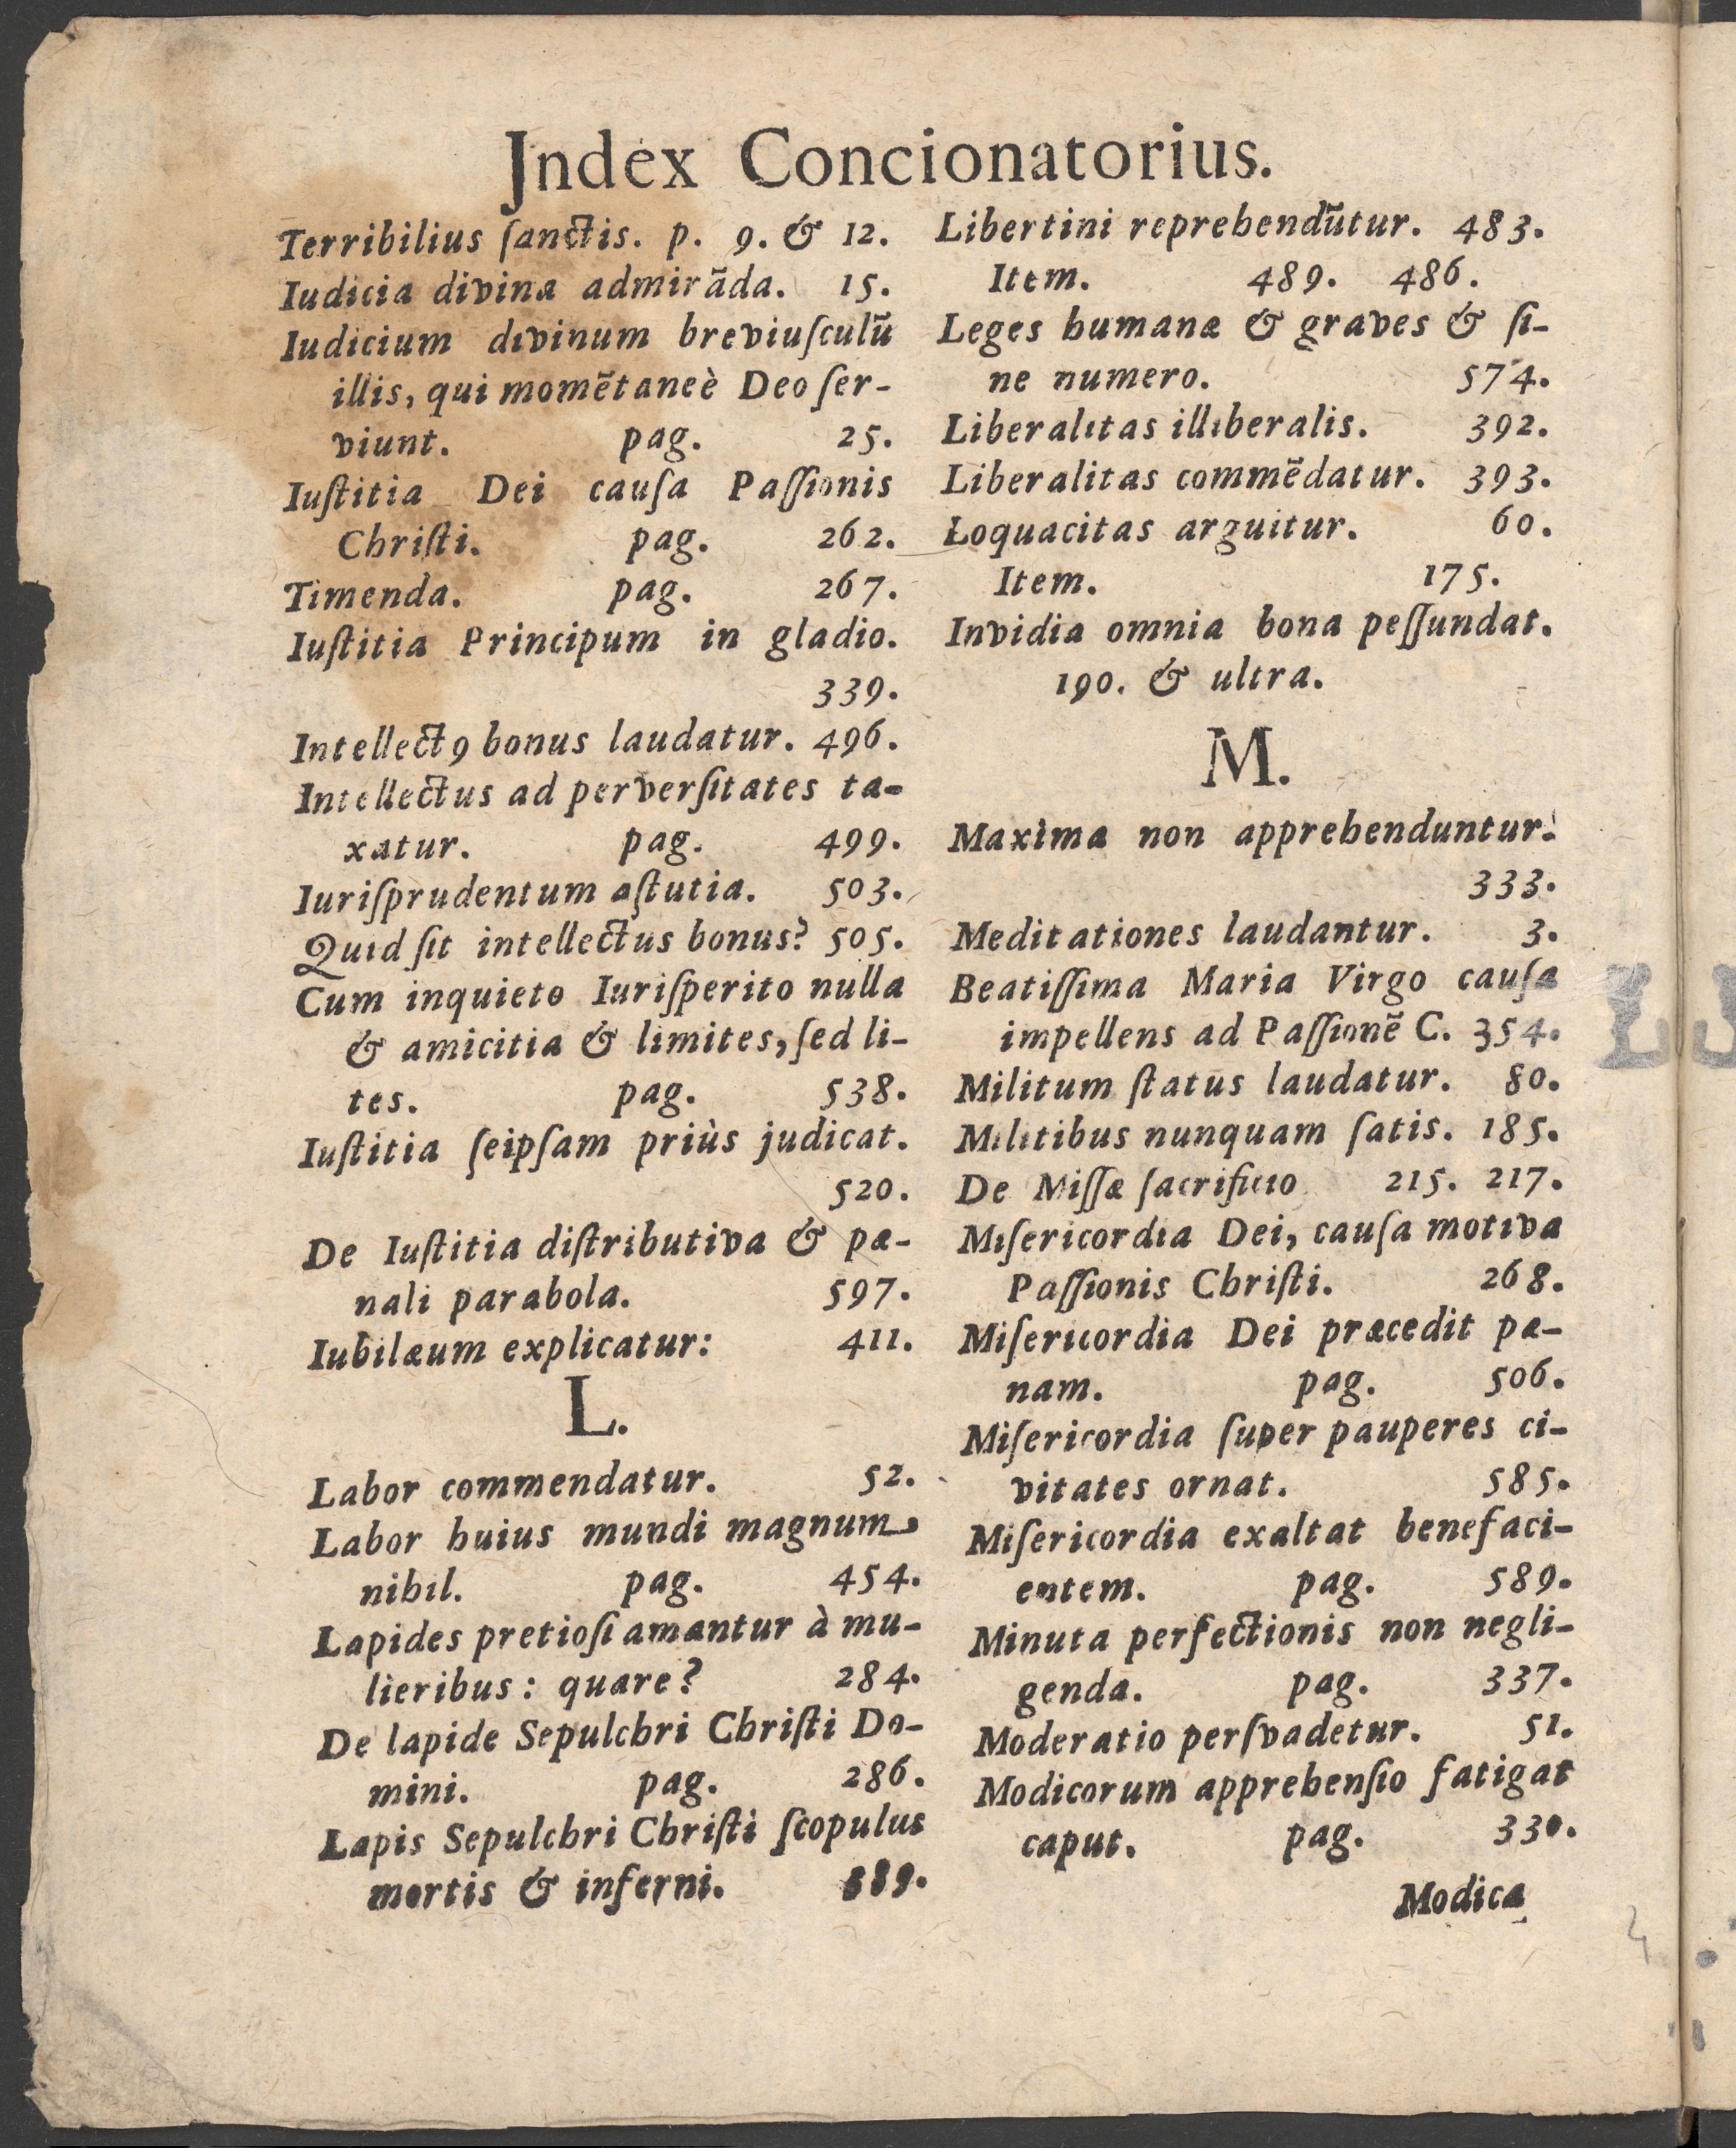 Jndex Concionatorius.
Terribilius ſanctis. p. 9. & 12.
Iudicia divina admirãda. 15.
Iudicium divinum breviuſculũ
illis, qui momẽtaneè Deo ſer-
viunt. pag. 25.
Iuſtitia Dei cauſa Paſſionis
Chriſti. pag. 262.
Timenda. pag. 267.
Iuſtitia Principum in gladio.
339.
Intellectꝰ bonus laudatur. 496.
Intellectus ad perverſitates ta-
xatur. pag. 499.
Iuriſprudentum aſtutia. 503.
Quid ſit intellectus bonus? 505.
Cum inquieto Iuriſperito nulla
& amicitia & limites, ſed li-
tes. pag. 538.
Iuſtitia ſeipſam priùs judicat.
520.
De Iuſtitia diſtributiva & pæ-
nali parabola. 597.
Iubilæum explicatur: 411.
L.
Labor commendatur. 52.
Labor huius mundi magnum
nihil. pag. 454.
Lapides pretioſi amantur à mu-
lieribus: quare? 284.
De lapide Sepulchri Chriſti Do-
mini. pag. 286.
Lapis Sepulchri Chriſti ſcopulus
mortis & inferni.
Libertini reprehendũtur. 483.
Item. 489. 486.
Leges humanæ & graves & ſi-
ne numero. 574.
Liberalitas illiberalis. 392.
Liberalitas commẽdatur. 393.
Loquacitas arguitur. 60.
Item. 175.
Invidia omnia bona peſſundat.
190. & ultra.
M.
Maxìma non apprehenduntur.
333.
Meditationes laudantur. 3.
Beatiſſima Maria Virgo cauſa
impellens ad Paſſionẽ C. 354.
Militum ſtatus laudatur. 80.
Militibus nunquam ſatis. 185.
De Miſſæ ſacrificio 215. 217.
Miſericordia Dei, cauſa motiva
Paſſionis Chriſti. 268.
Miſericordia Dei præcedit pæ-
nam. pag. 506.
Miſericordia ſuper pauperes ci-
vitates ornat. 585.
Miſericordia exaltat benefaci-
entem. pag. 589.
Minuta perfectionis non negli-
genda. pag. 337.
Moderatio perſvadetur. 51.
Modicorum apprehenſio fatigat
caput. pag. 330.
Modica